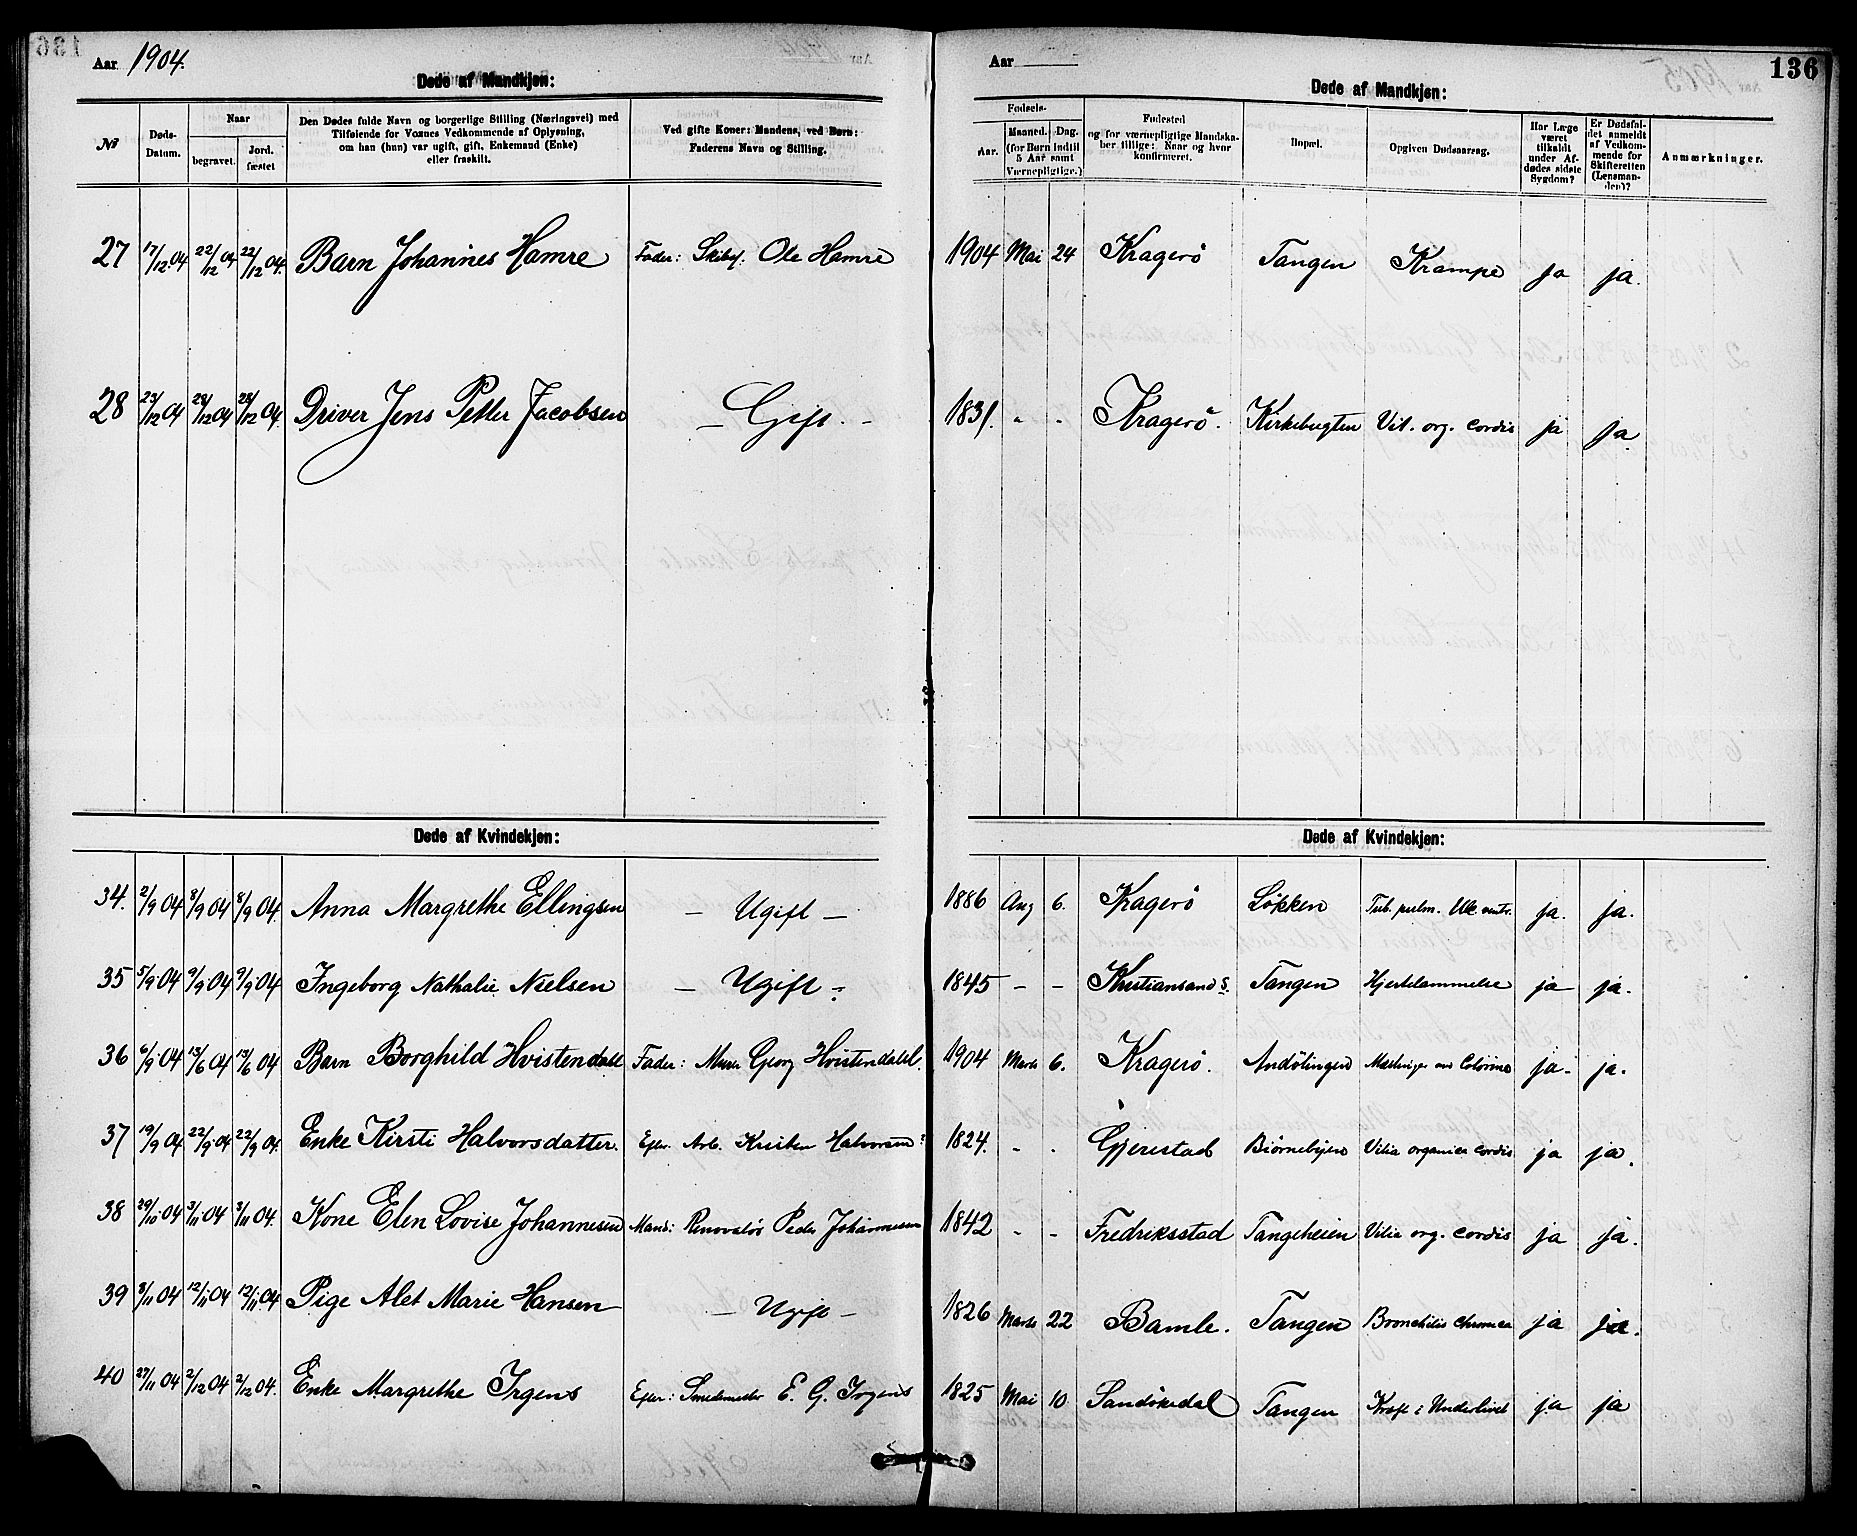 Aar 1904.
Døde af Mandkjøn:
№
Døds-Datum.
Naar
begravet.
Jord.fæstet
Den Dødes fulde Navn og borgerlige Stilling (Næringsvei) med
Tilføiende for Voxnes Vedkommende af Oplysning,
om han (hun) var ugift, gift, Enkemand (Enke)
eller fraskilt.
Ved gifte Koner: Mandens, ved Børn:
Faderens Navn og Stilling.
Aar
136
Døde af Mandkjøn:
Fødsels-
Aar.
Maaned. Dag.
(for Børn indtil
5 Aar samt
Værnepligtige.)
Fødested
og for værnepligtige Mandska-
ber tillige: Naar og hvor
konfirmeret.
Bopæl.
Opgiven Dødsaarsag.
Har Læge
været
tilkaldt
under Af-
dødes sidste
Sygdom?
Er Dødsfal-
det anmeldt
af Vedkom-
mende for
Skifteretten
(Lensman-
den)?
Anmærkninger.
27 17/12 04 22/12 04 22/12 04. Barn Johannes Hamre Fader: Skibsf. Ole Hamre 1904 Mai 24 Kragerö Tangen Krampe ja ja.
28 23/12 04 28/12 04 28/12 04. Driver Jens Petter Jacobsen – Gift. – 1831. " - Kragerö. Kirkebugten Vit. org. cordis ja ja.
Døde af Kvindekjøn:
Døde af Kvindekjøn:
34. 2/9 04 8/9 04 8/9 04. Anna Margrethe Ellingsen – Ugift – 1886 Aug 6. Kragerö Løkken Tub. pulm. Ulc. ventr. ja. ja.
35 5/9 04 9/9 04 9/9 04 Ingeborg Nathalie Nielsen – Ugift – 1845 – – Kristiansand S. Tangen Hjertelammelse ja ja.
36 6/9 04 13/6 04 13/6 04 Barn Borghild Hvistendahl Fader: Murer Georg Hvistendahl. 1904 Marts 6. Kragerö. Andölingen ja. ja.
37 19/9 04 22/9 04 22/9 04. Enke Kirsti Halvorsdatter. Efter Arb. Kristen Halvorsen 1824. - . Gjerestad Biørnebyen Vitia organica cordis ja ja.
38 29/10 04 3/11 04 3/11 04. Kone Elen Lovise Johannesen Mand: Renovatör Peder Johannesen 1842 - - Fredriksstad Tangeheien Vitia org. cordis ja ja.
39 8/11 04 12/11 04 12/11 04 Pige Alet Marie Hansen – Ugift – 1826 Marts 22 Bamle. Tangen Bronchitis chronica ja ja.
40 27/11 04 2/12 04 2/12 04. Enke Margrethe Irgens Efter: Smedemester E. G. Irgens 1825 Mai 10 Sandökedal Tangen Kræft i Underlivet ja ja